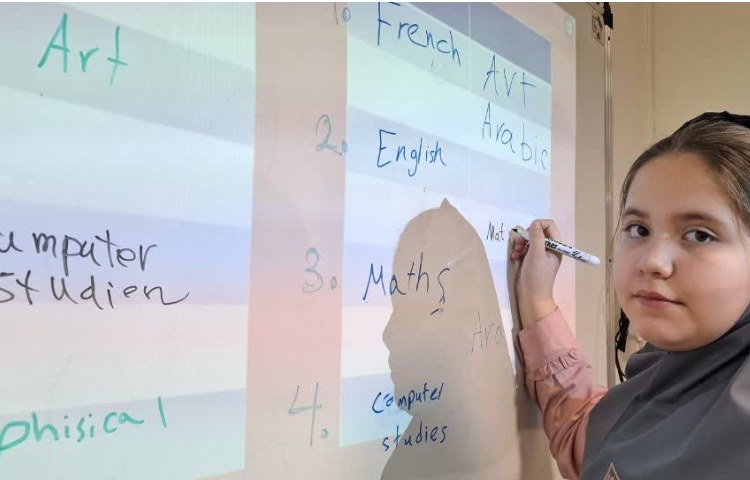 Art
umputer
studien
phisical
1. French
Art
Arabic
2. English
Mat
3. Maths
Ara
4. computer
studies